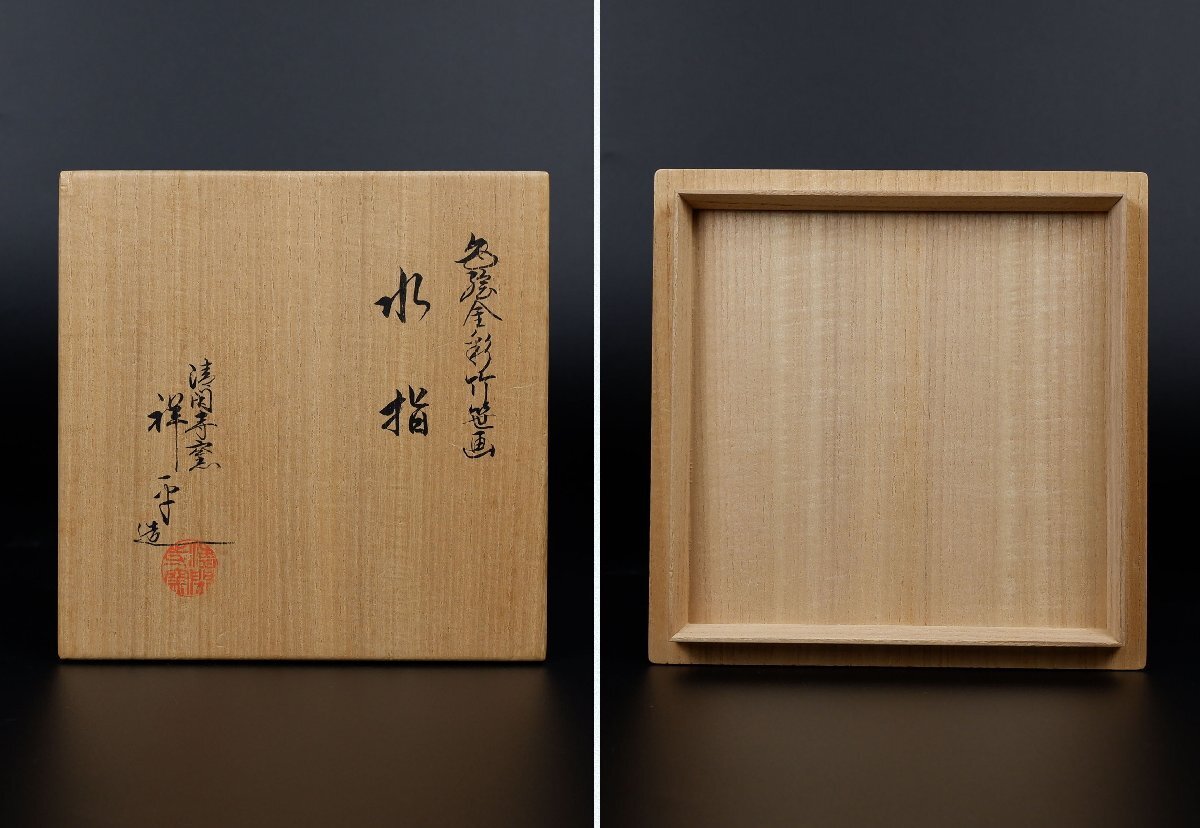 色絵金彩竹笹画
水指
清閑寺窯
祥平造
清閑寺窯